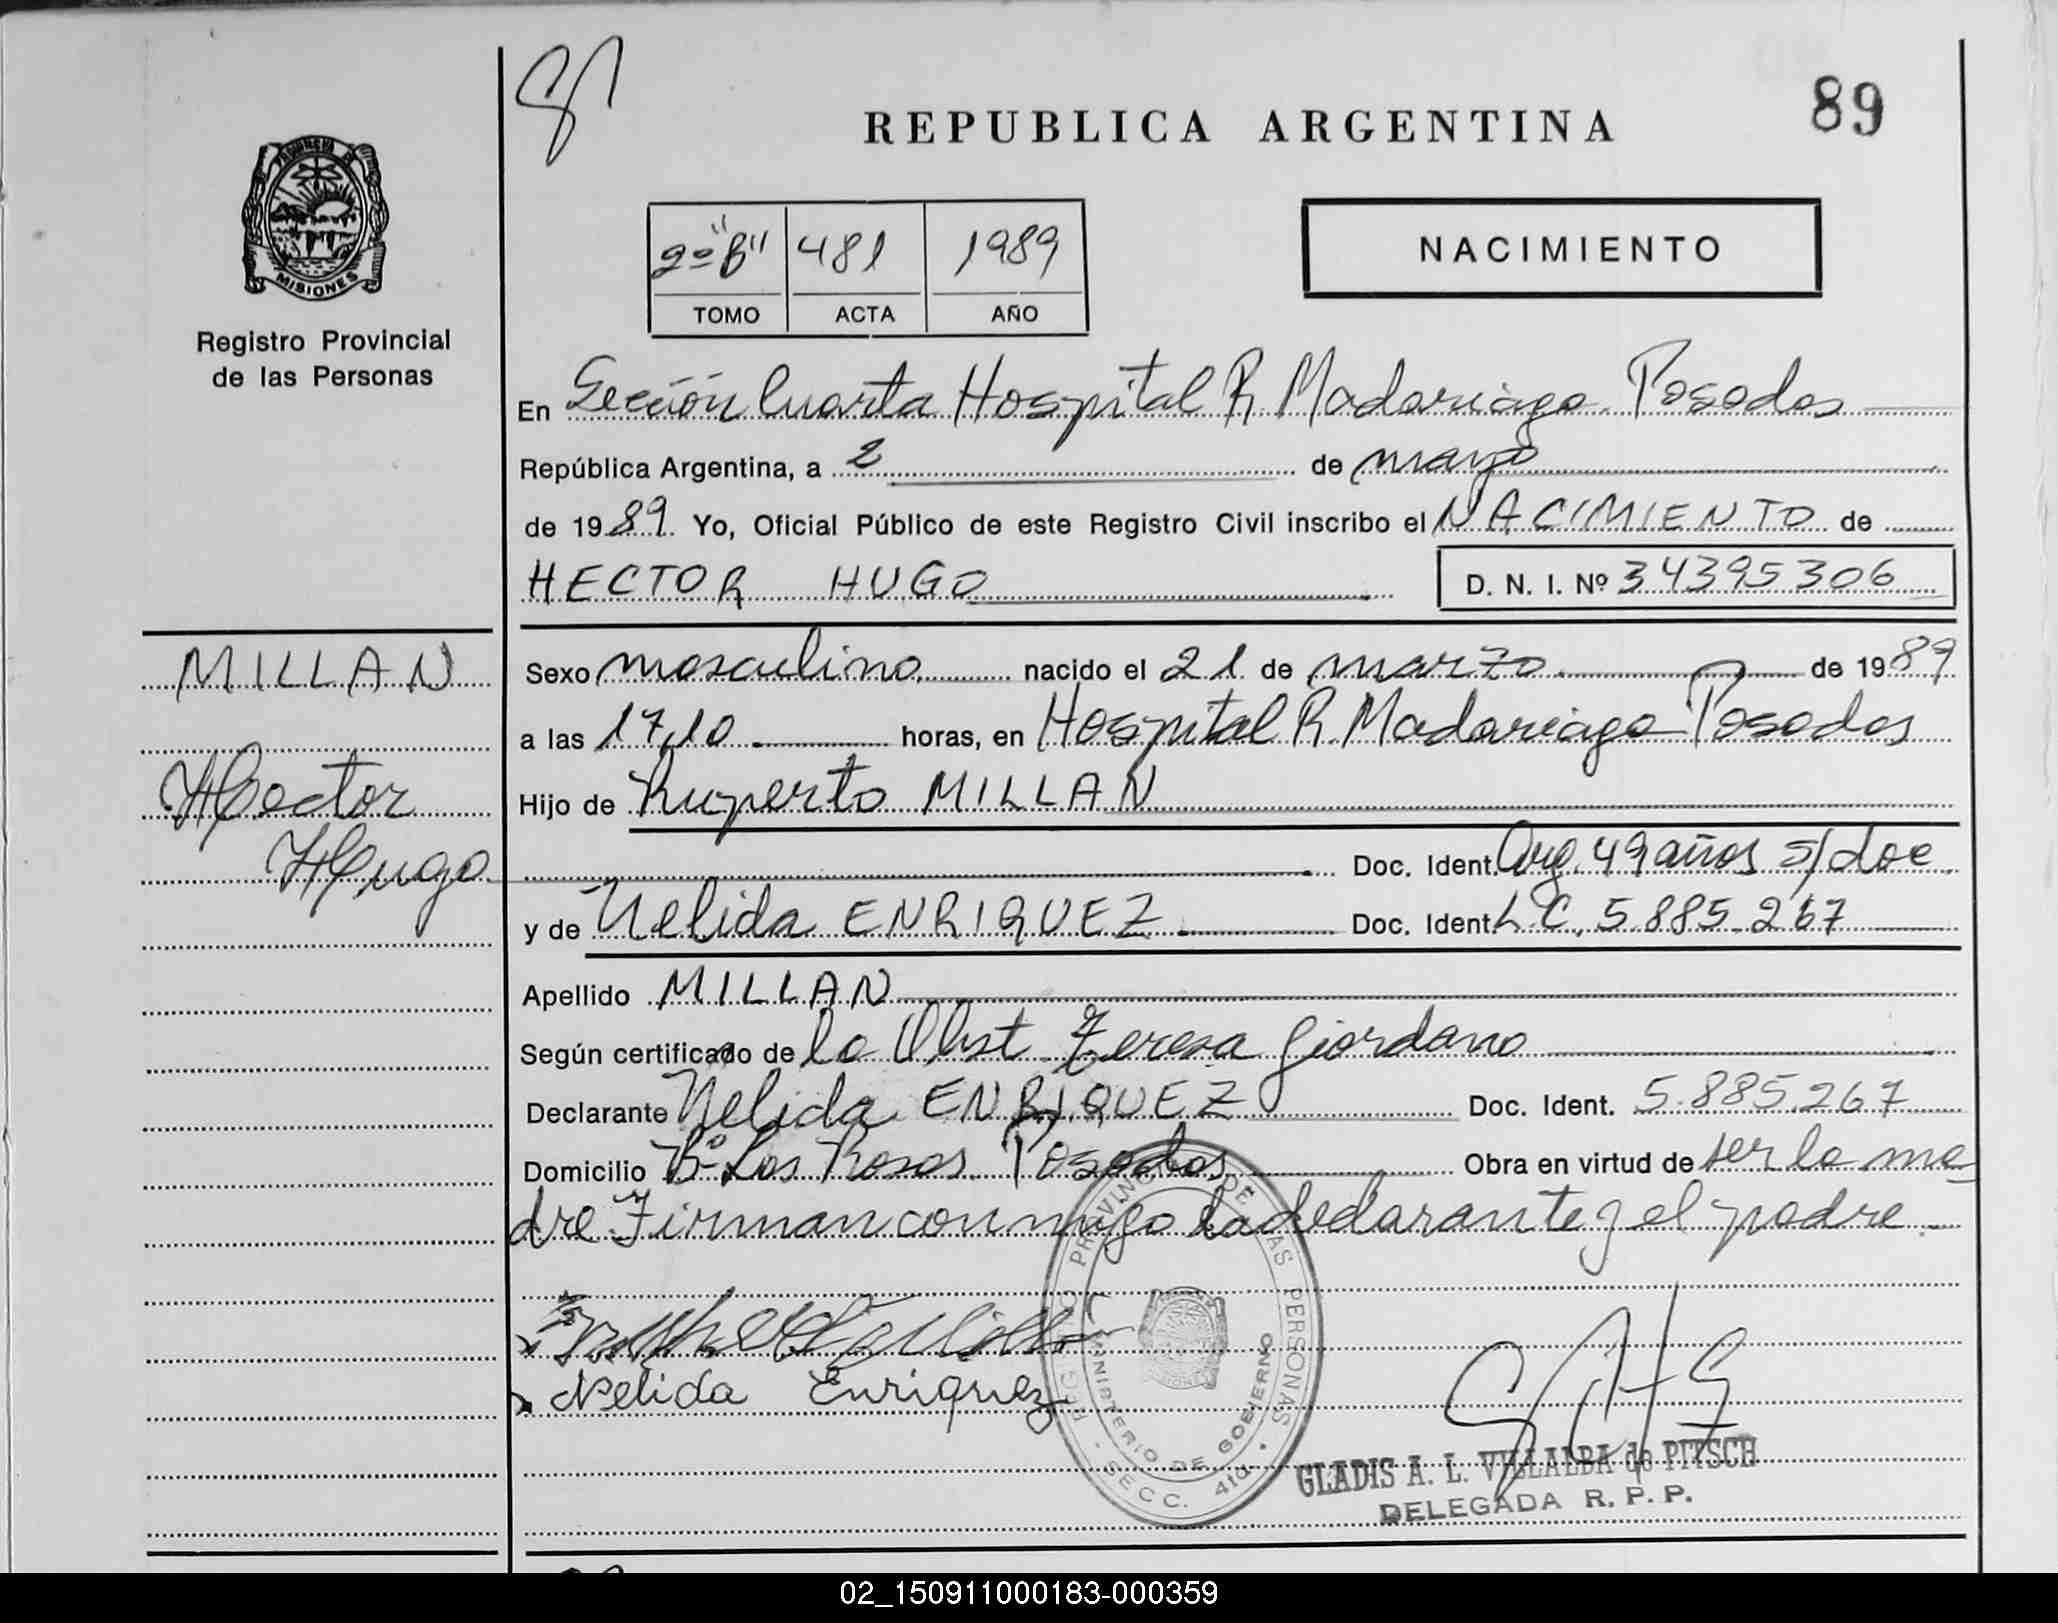 REPUBLICA ARGENTINA
89
PROVINCIA DE
MISIONES
Registro Provincial
de las Personas
2º "B" 481 1989
TOMO ACTA AÑO
NACIMIENTO
En Sección Cuarta Hospital R Madariaga Posadas
República Argentina, a 2 de mayo
de 1989 Yo, Oficial Público de este Registro Civil inscribo el NACIMIENTO de
HECTOR HUGO
D. N. I. Nº 34395306
MILLAN
Hector
Hugo
Sexo masculino nacido el 21 de marzo de 1989
a las 17,10 horas, en Hospital R Madariaga Posadas
Hijo de Ruperto MILLAN
Doc. Ident. Arg. 49 años s/doc
y de Nelida ENRIQUEZ Doc. Ident L.C. 5.885.267
Apellido MILLAN
Según certificado de la Obst Teresa Giordano
Declarante Nelida ENRIQUEZ Doc. Ident. 5.885.267
Domicilio Bº Las Rosas Posadas Obra en virtud de ser la ma
dre Firman conmigo la declarante y el padre.
Nelida Enriquez
PROVINCIAL DE LAS PERSONAS
MINISTERIO DE GOBIERNO
SECC. 4ta.
GLADIS A. L. VILLALBA de PITSCH
DELEGADA R. P. P.
02_150911000183-000359